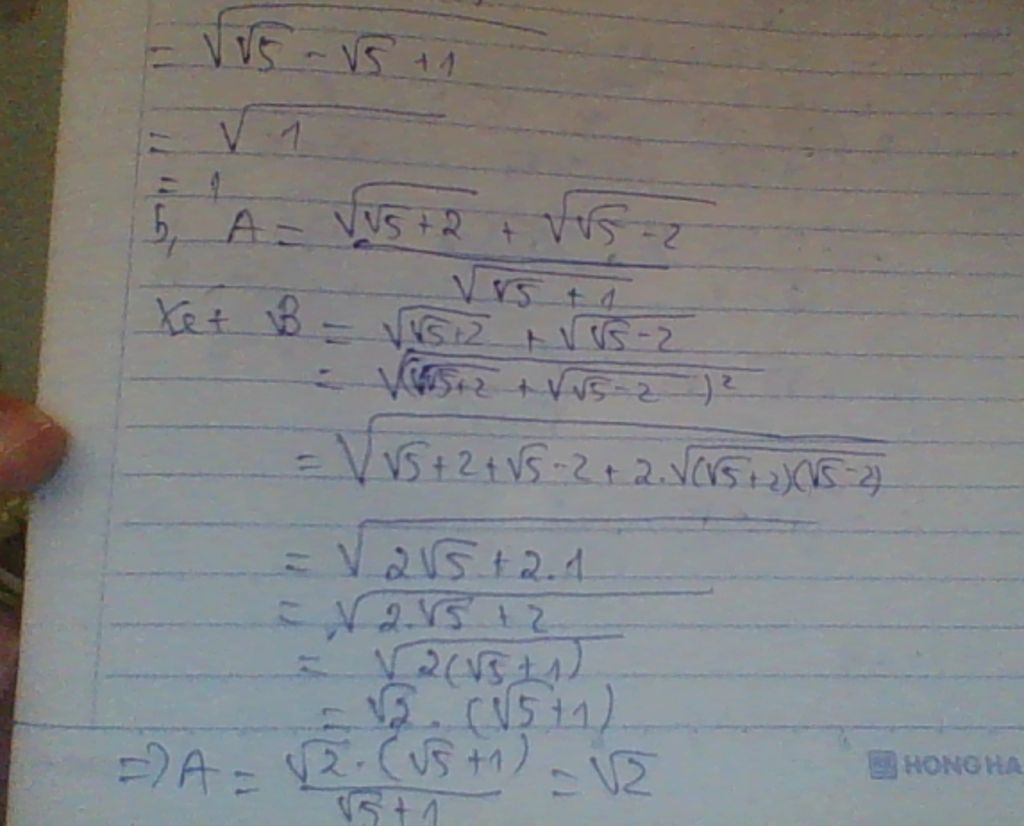 = √(√5 - √5 + 1)
= √1
= 1
b, A = (√(√5+2) + √(√5-2)) / √(√5+1)
Xét B = √(√5+2) + √(√5-2)
= √((√(√5+2) + √(√5-2))²)
= √(√5+2+√5-2+2.√((√5+2)(√5-2)))
= √(2√5+2.1)
= √(2.√5+2)
= √(2(√5+1))
= √2.(√5+1)
=> A = (√2.(√5+1)) / (√5+1) = √2
HONG HA